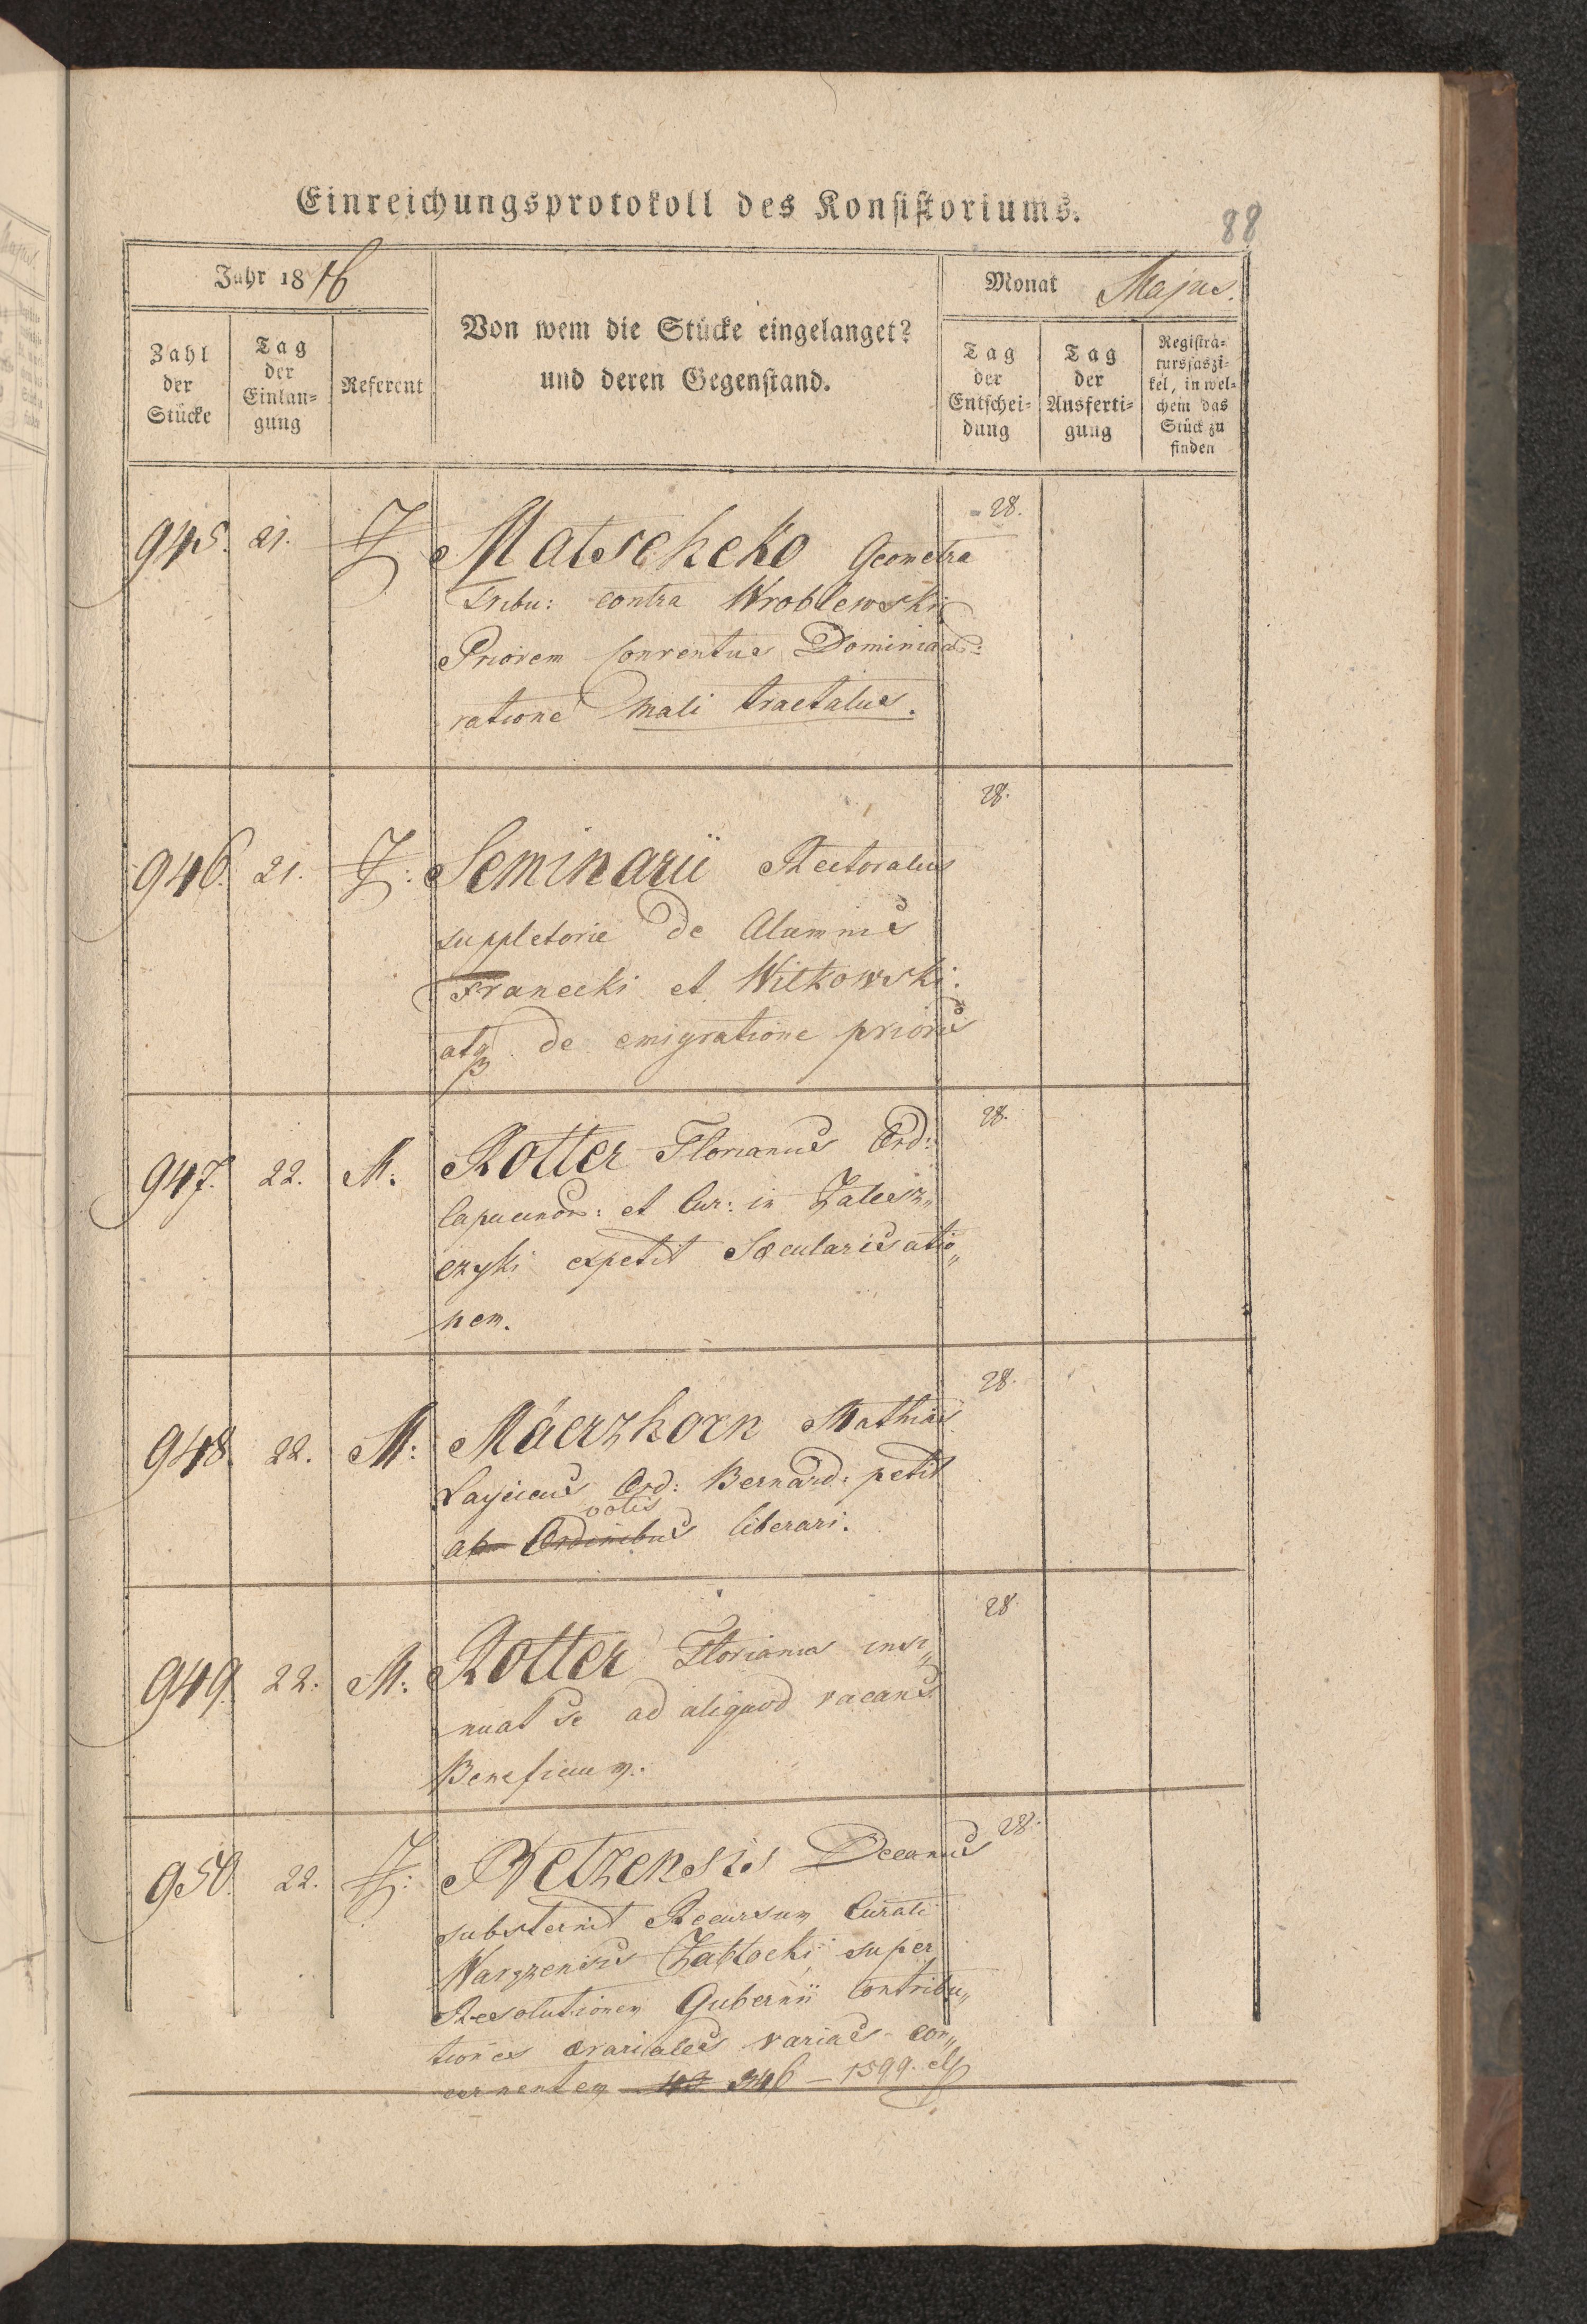 Einreichungsprotokoll des Konsistoriums.
88
Jahr 1816
Von wem die Stücke eingelanget?
und deren Gegenstand.
Monat Majus.
Zahl
der
Stücke
Tag
der
Einlan=
gung
Referent
Tag
der
Entschei=
dung
Tag
der
Ausferti=
gung
Registra=
tursfaszi=
kel, in wel=
chem das
Stück zu
finden
945. 21. Z Matscheko Geometra 28.
Tribu: contra Wroblewski
Priorem Conventus Dominica:
ratione mali tractatus.
946. 21. Z: Seminarii Rectoratus 28.
suppletorie de Alumnis
Franecki et Witkowski.
atq de emigratione prioris
947. 22. M: Rotter Florianus Ord: 28.
Capucinor: et Cur: in Zalesz„
czyki expetit Sæcularisatio„
nem.
948. 22. M: Máerzhorn Mathias 28.
Layicus Ord: Bernard: petit
votis
ab Ordinibus liberari.
949. 22. M: Rotter Florianus insi„ 28.
nuat se ad aliquod vacans
Beneficium.
950. 22. Z: Betzensis Decanus 28.
substernit Recursum Curati
Warezensis Zabłocki super
Resolutionem Gubernii Contribu„
tiones ærariales varias con„
cernentem 346 – 1599.